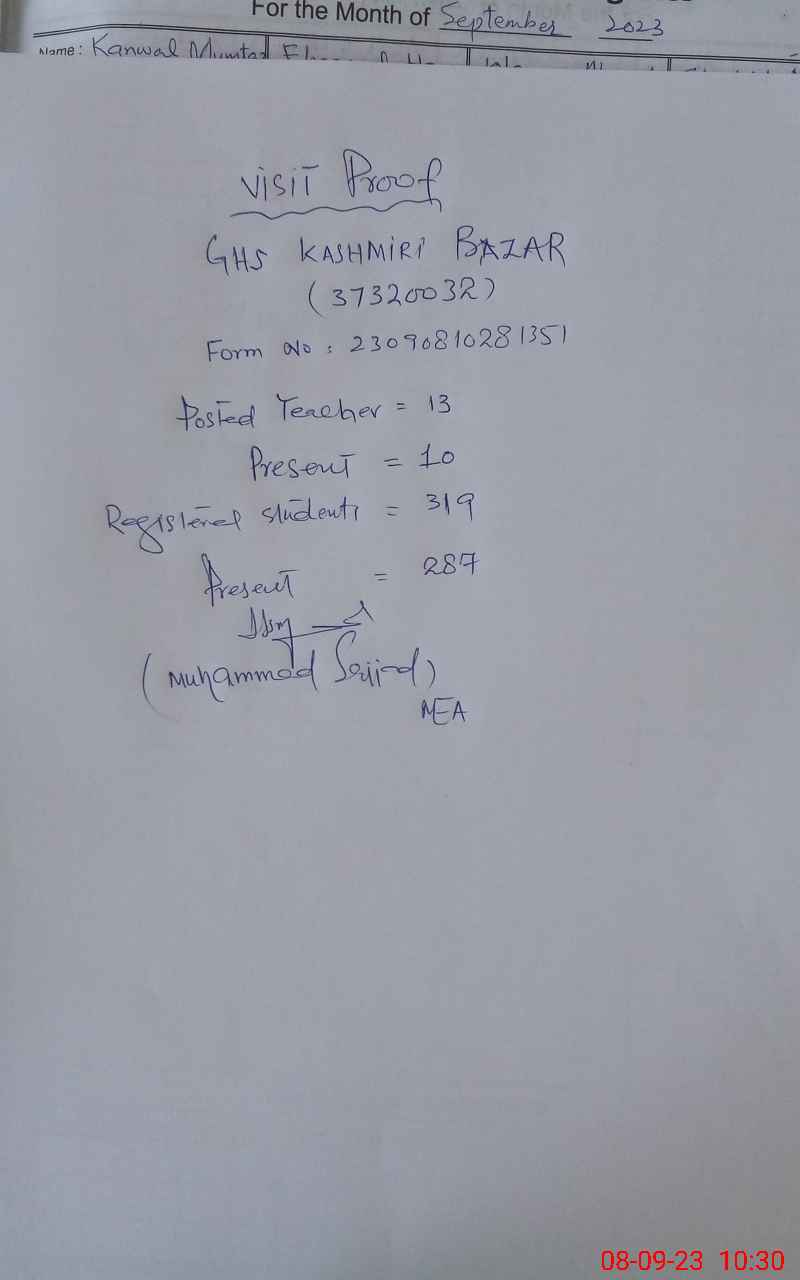 For the Month of September 2023
Name: Kanwal Mumtaz
Visit Proof
GHS KASHMIRI BAZAR
(37320032)
Form No: 23090810281351
Posted Teacher = 13
Present = 10
Registered students = 319
Present = 287
(Muhammad Sajjad)
MEA
08-09-23 10:30